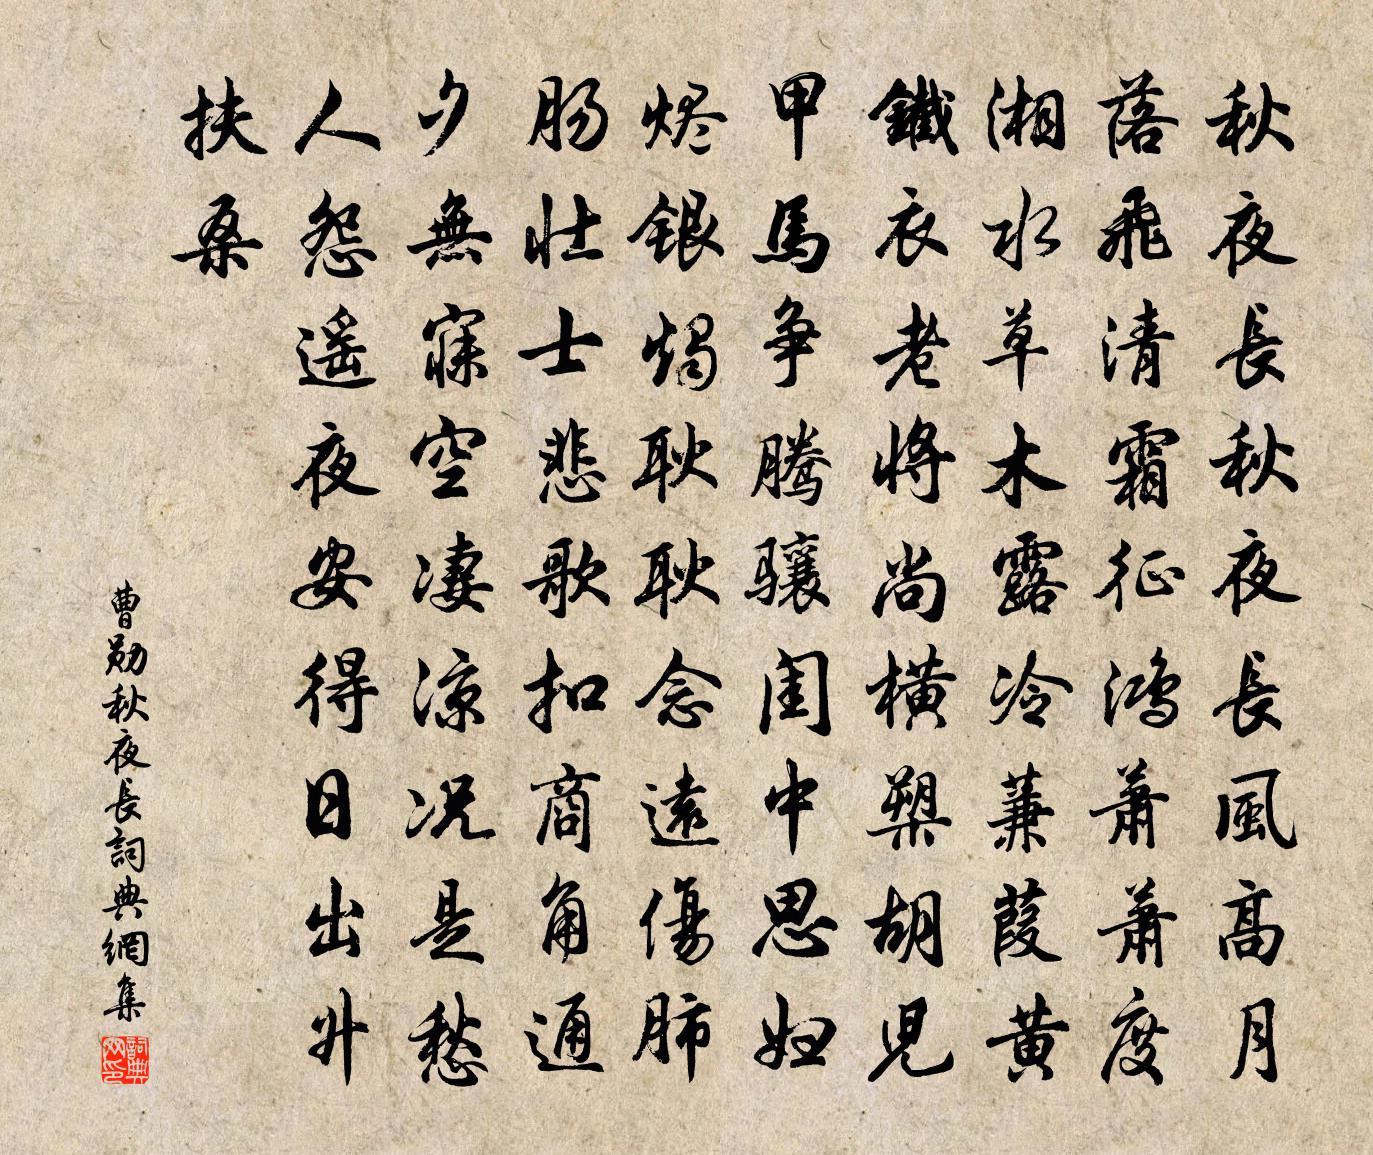 秋夜長秋夜長風高月
落飛清霜征鴻蕭蕭度
湘水草木露冷蒹葭黃
鐵衣老將尚橫槊胡兒
甲馬爭騰驤閨中思婦
燼銀燭耿耿念遠傷肺
腸壯士悲歌扣商角通
夕無寐空凄涼况是愁
人怨遙夜安得日出升
扶桑
曹勛秋夜長詞典網集
詞典网印